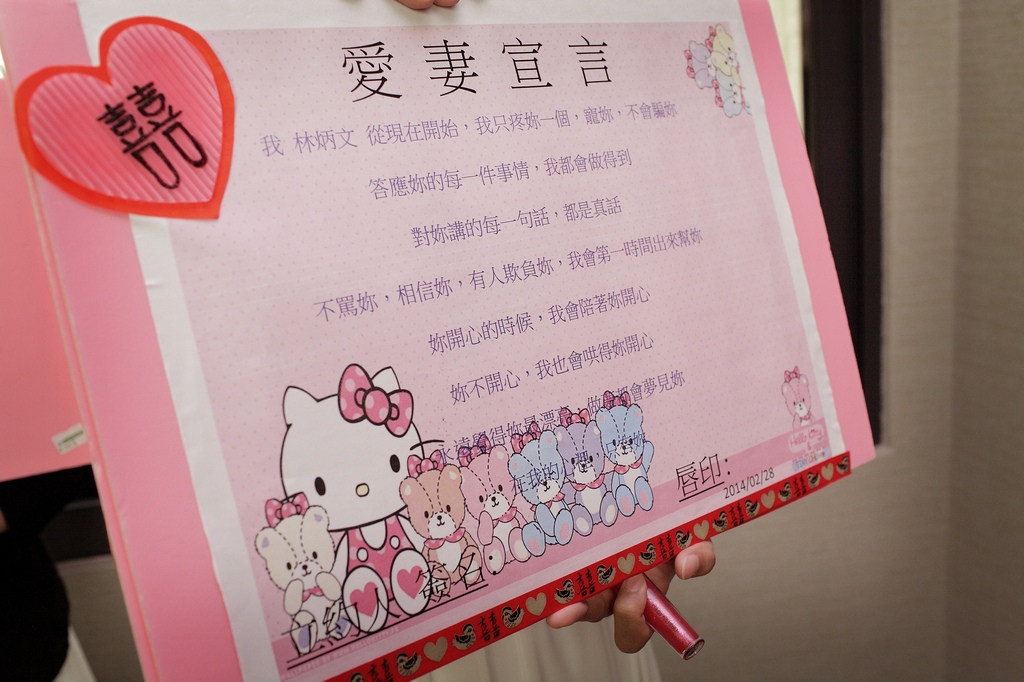 囍
愛妻宣言
我 林炳文 從現在開始，我只疼妳一個，寵妳，不會騙妳
答應妳的每一件事情，我都會做得到
對妳講的每一句話，都是真話
不罵妳，相信妳，有人欺負妳，我會第一時間出來幫妳
妳開心的時候，我會陪著妳開心
妳不開心，我也會哄得妳開心
永遠覺得妳最漂亮，做夢都會夢見妳
在我的心裡，只有妳
唇印：
2014/02/28
Hello Kitty
立約人簽名